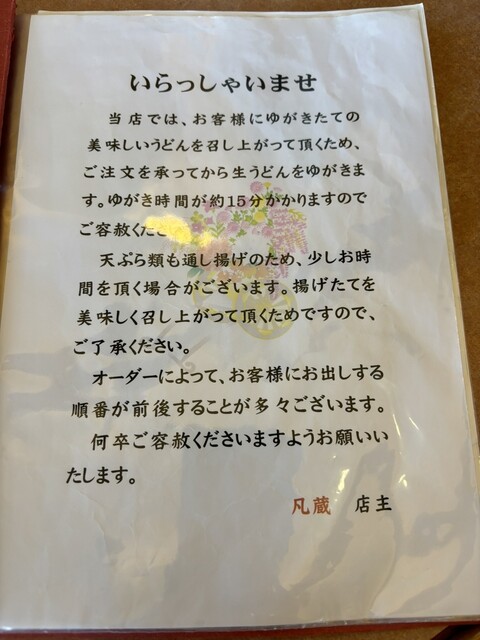 いらっしゃいませ
当店では、お客様にゆがきたての
美味しいうどんを召し上がって頂くため、
ご注文を承ってから生うどんをゆがきま
す。ゆがき時間が約15分かかりますので
ご容赦くだ
天ぷら類も通し揚げのため、少しお時
間を頂く場合がございます。揚げたてを
美味しく召し上がって頂くためですので、
ご了承ください。
オーダーによって、お客様にお出しする
順番が前後することが多々ございます。
何卒ご容赦くださいますようお願いい
たします。
凡蔵　店主